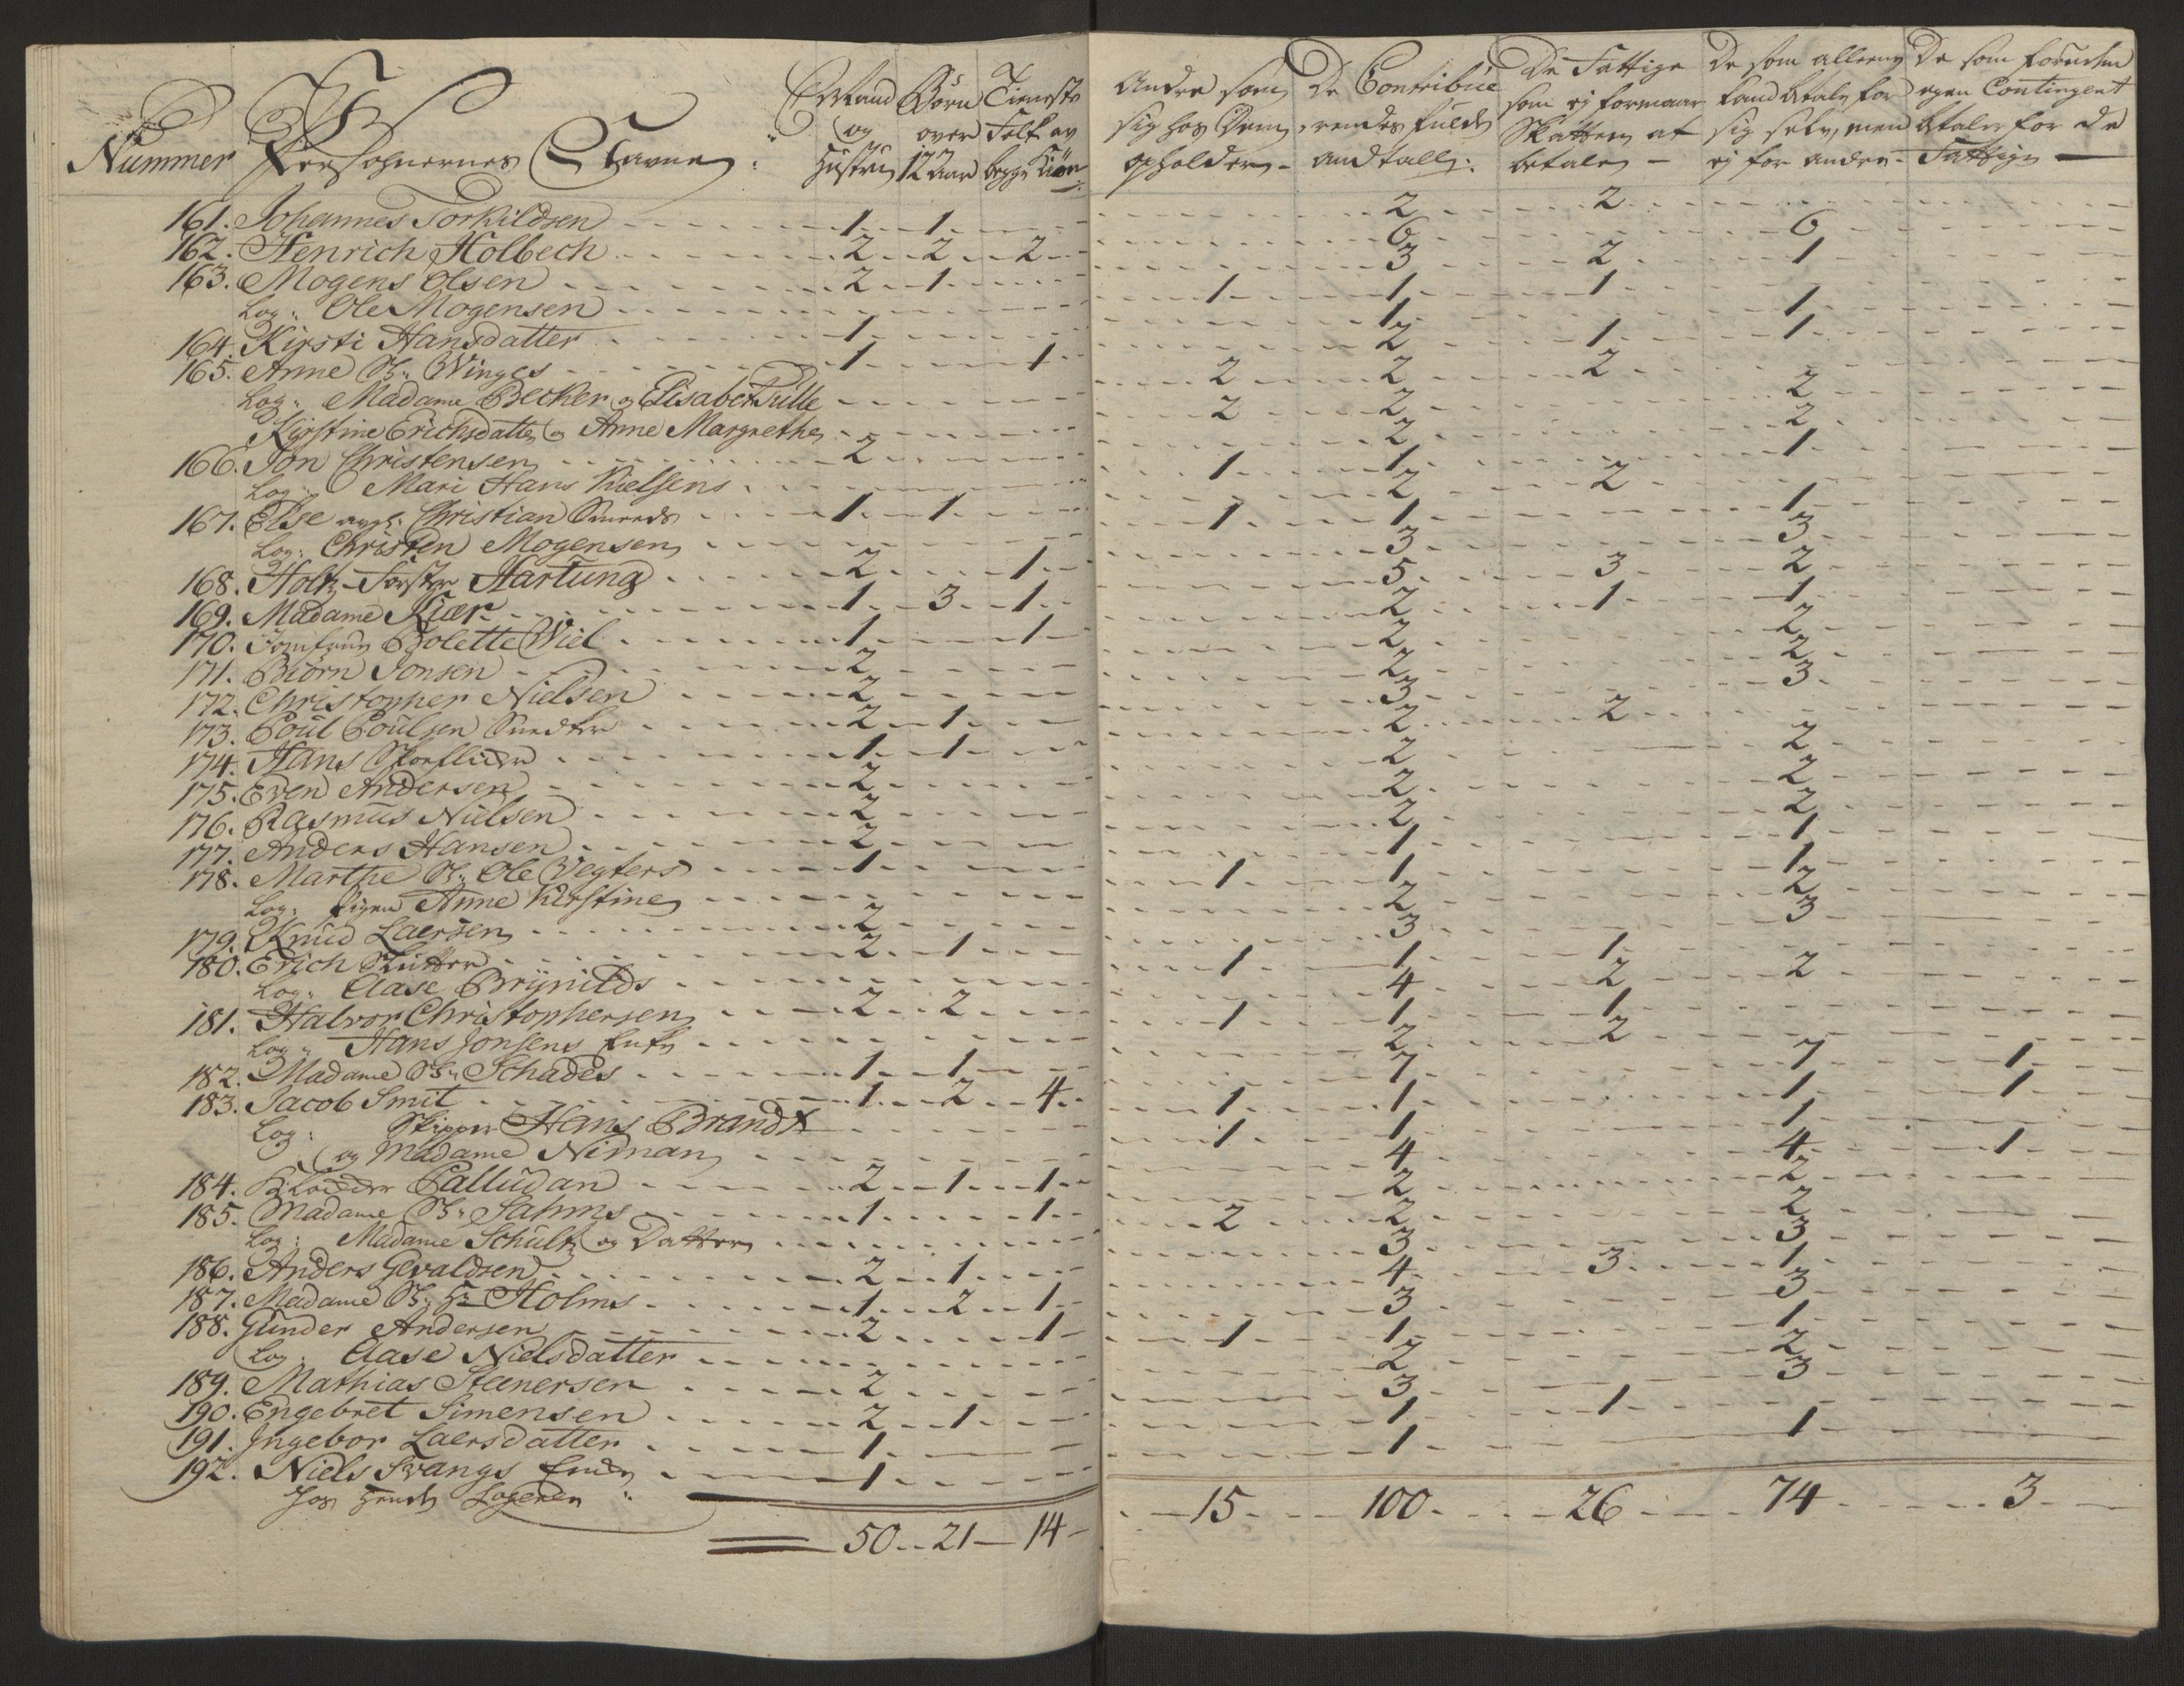 Nummer Persohnernes Navne Mand og Hustru Børn over 12 Aar Tieneste Folk av begge Kiøn Andre som sig hos Dem opholder De Contribuerendes fulde andtall De Fattige som ej formaar Skatten at betale De som alleene kand betale for sig selv, men ej for andre De som foruden egen Contingent betaler for de Fattige
161. Johannes Torkildsen 1 1 2 2
162. Henrich Holbech 2 2 2 6 6
163. Mogens Olsen 2 1 3 2 1
Log: Ole Mogensen 1 1 1
164. Kirsti Hansdatter 1 1 1
165. Anne S: Winges 1 1 2 1 1
Log: Madame Becker og Elisabet Tulle 2 2 2
Kirstine Erichsdatter og Anne Margrethe 2 2 2
166. Jon Christensen 2 2 2
Log: Mari Hans Nielsens 1 1 1
167. Else Christian Smeds 1 1 2 2
Log: Christen Mogensen 1 1 1
168. Holtz-Førster Hartung 2 1 3 3
169. Madame Kiær 1 3 1 5 3 2
170. Jomfrue Bolette Wiel 1 1 2 1 1
171. Biørn Jonsen 2 2 2
172. Christopher Nielsen 2 2 2
173. Poul Poulsen 2 1 3 3
174. Hans Skoeflicker 1 1 2 2
175. Even Andersen 2 2 2
176. Rasmus Nielsen 2 2 2
177. Anders Hansen 2 2 2
178. Marthe S: Ole Vegters 1 1 1
Log: Pigen Anne Kirstine 1 1 1
179. Knud Laersen 2 2 2
180. Erich 2 1 3 3
Log: Aase Brynilds 1 1 1
181. Halvor Christophersen 2 2 4 2 2
Log: Hans Jonsens Enke 1 1 1
182. Madame S: Schades 1 1 2 2
183. Jacob Smit 1 2 4 7 7 1
Log: Skipper Hans Brandt 1 1 1 1
og Madame Niman 1 1 1
184. Palludan 2 1 1 4 4 1
185. Madame S: Sahms 1 1 2 2
Log: Madame Schultz og Datter 2 2 2
186. Anders Gevaldsen 2 1 3 3
187. Madame S: Hr Holms 1 2 1 4 3 1
188. Gunder Andersen 2 1 3 3
Log: Aase Nielsdatter 1 1 1
189. Mathias Stenersen 2 2 2
190. Engebret Simensen 2 1 3 3
191. Ingebor Laersdatter 1 1 1
192. Niels Svangs Enke 1 1 1
Logerer
50 21 14 15 100 26 74 3